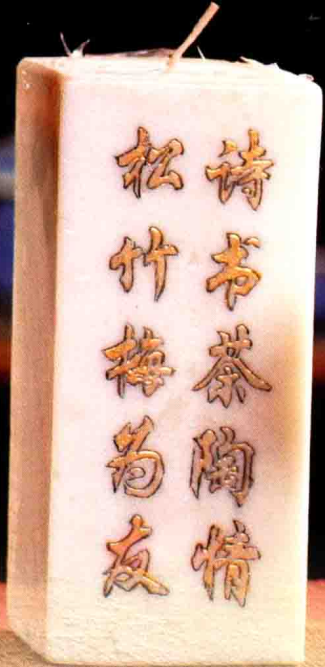 诗书茶陶情
松竹梅为友